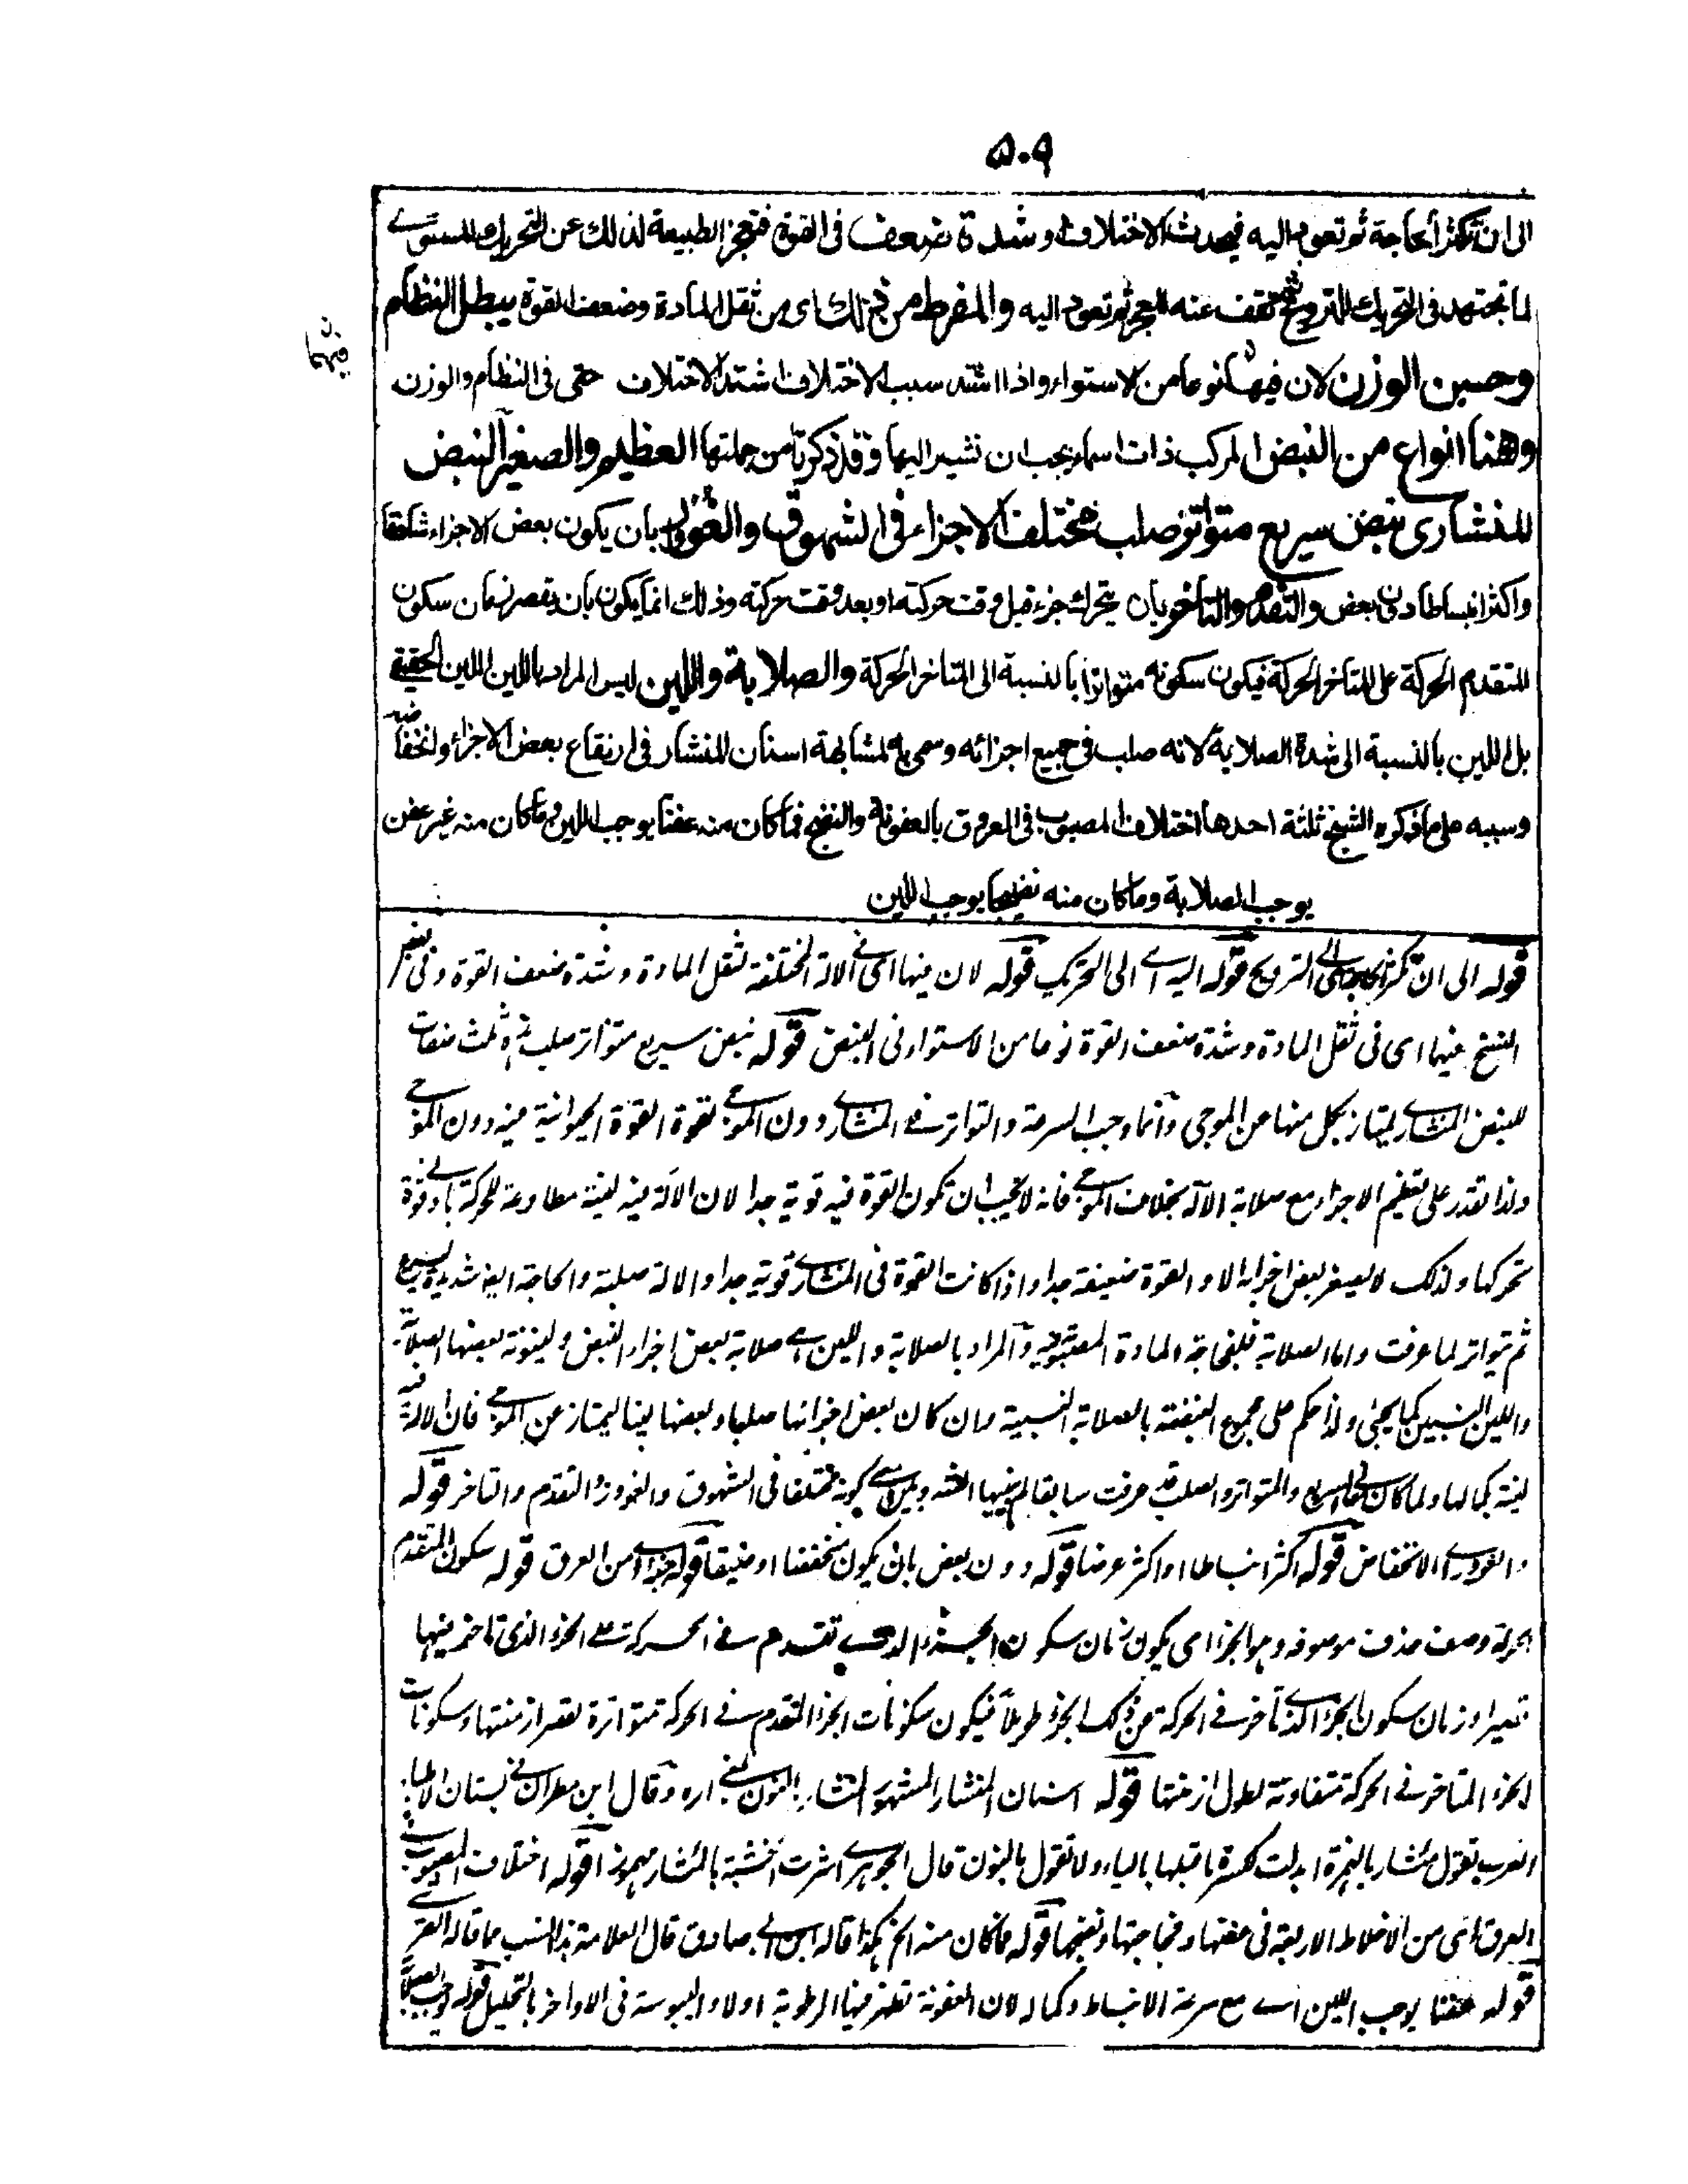 ۵۰۹
الى ان تكثر الحاجة ثم تعود اليه فيحدث الاختلاف او شدة ضعف فى القوة فتعجز الطبيعة لذلك عن التحريك المستوى
لما تجتهد فى التحريك للترويح ثم تقف عنه للعجز ثم تعود اليه والمفرط من ذلك اى من ثقل المادة وضعف القوة يبطل النظام
وحسن الوزن لان فيهما نوعا من الاستواء واذا اشتد سبب الاختلاف اشتد الاختلاف حتى فى النظام والوزن
وهنا انواع من النبض المركب ذات اسماء يجب ان نشير اليها وقد ذكرنا من جملتها العظيم والصغير النبض
المنشارى نبض سريع متواتر صلب مختلف الاجزاء فى الشهوق والغؤر بان يكون بعض الاجزاء شاهقا
واكثر انبساطا دون بعض والتقدم والتاخر بان يتحرك جزء قبل وقت حركته او بعد وقت حركته وذلك انما يكون بان يقصر زمان سكون
المتقدم الحركة على المتاخر الحركة فيكون سكونه متواترا بالنسبة الى المتاخر الحركة والصلابة واللين ليس المراد باللين اللين الحقيقى
بل اللين بالنسبة الى شدة الصلابة لانه صلب فى جميع اجزائه وسمى به لمشابهة اسنان المنشار فى ارتفاع بعض الاجزاء وانخفاضه
وسببه على ما ذكره الشيخ ثلثة احدها اختلاف المصبوب فى العروق بالعفونة والنضج فما كان منه عفنا يوجب اللين وما كان منه غير عفن
يوجب الصلابة وما كان منه نضيجا يوجب اللين
قوله الى ان تكثر الحاجة اى الى الترويح قوله اليه اے الى التحريك قوله لان فيها اى فى الالة المختلفة لثقل المادة وشدة ضعف القوة وفى بعض
النسخ فيهما اى فى ثقل المادة وشدة ضعف القوة نوعا من الاستواء فى النبض قوله نبض سريع متواتر صلب هذه ثلث صفات
للنبض المنشارے ليمتاز بكل منها عن الموجى وانما وجب السرعة والتواتر فے المنشارے دون الموجے لقوة القوة الحيوانية فيه دون الموجے
ولذا تقدر على تعظيم الاجزاء مع صلابة الالة بخلاف الموجے فانه لا يجب ان تكون القوة فيه قوية جدا لان الالة فيه لينة مطاوعة للحركة بادنے قوة
تحركها ولذلك لا يصغر بعض اجزائه الا والقوة ضعيفة جدا واذا كانت القوة فى المنشارے قوية جدا والالة صلبة والحاجة ايضا شديدة يسرع
ثم تتواتر لما عرفت واما الصلابة فلفجاجة المادة المصبوبة والمراد بالصلابة واللين اے صلابة بعض اجزاء النبض ولينونة بعضها الصلابة
واللين النسبيين كما يجئ ولذا حكم على مجموع النبضة بالصلابة النسبية وان كان بعض اجزائها صلبا وبعضها لينا ليمتاز عن الموجے فان الالة فيه
لينة بكمالها ولما كان السريع والمتواتر والصلب قد عرفت سابقا لم يبينها الشه وبين كونه مختلفا فى الشهوق والغور والتقدم والتاخر قوله
والغور اے الانخفاض قوله اكثر انبساطا او اكثر عرضا قوله دون بعض بان يكون منخفضا او ضيقا قوله جزء اے من العرق قوله سكون المتقدم
الحركة وصف حذف موصوفه وهو الجزء اى يكون زمان سكون الجزء الذى تقدم فے الحركة علے الجزء الذى تاخر فيها
قصيرا وزمان سكون الجزء الذى تاخر فے الحركة من ذلك الجزء طويلا فيكون سكونات الجزء المتقدم فے الحركة متواترة لقصر ازمنتها وسكونات
الجزء المتاخر فے الحركة متفاوتة لطول ازمنتها قوله اسنان المنشار المشهور المنشار بالنون بمعنے اره وقال ابن مطران فے بستان الاطباء
العرب تقول مئشار بالهمزة ابدلت لكسرة ما قبلها بالياء ولا تقول بالنون قال الجوهرے اشرت الخشبة بالمئشار مهموز قوله اختلاف المصبوب فے
العروق اى من الاخلاط الاربعة فى عفنها وفجاجتها ونضجها قوله فما كان منه الخ هكذا قاله ابن ابے صادق قال العلامة هذا انسب مما قاله القرشے
قوله عفنا يوجب اللين اے مع سرعة الانبساط وكماله لان العفونة تظهر فيها الرطوبة اولا واليبوسة فى الاواخر بالتحليل قوله يوجب الصلابة